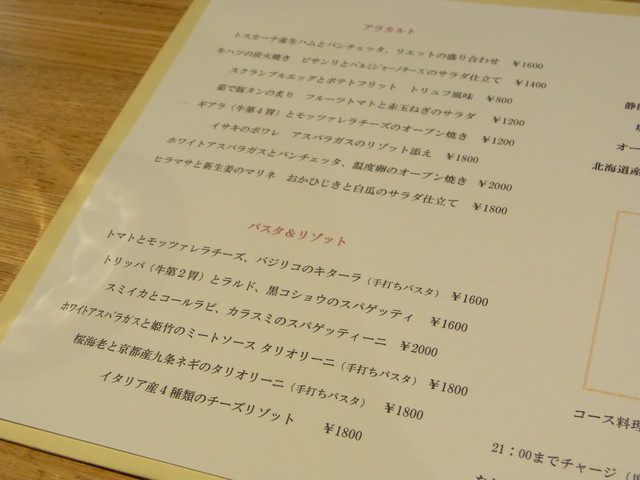 アラカルト
トスカーナ産生ハムとパンチェッタ、リエットの盛り合わせ ¥1600
牛ハツの炭火焼き ピサンリとパルミジャーノチーズのサラダ仕立て ¥1400
スクランブルエッグとポテトフリット トリュフ風味 ¥800
茹で豚タンの炙り フルーツトマトと赤玉ねぎのサラダ ¥1200
ギアラ（牛第４胃）とモッツァレラチーズのオーブン焼き ¥1200
イサキのポワレ アスパラガスのリゾット添え ¥1800
ホワイトアスパラガスとパンチェッタ、温度卵のオーブン焼き ¥2000
ヒラマサと新生姜のマリネ おかひじきと白瓜のサラダ仕立て ¥1800
パスタ＆リゾット
トマトとモッツァレラチーズ、バジリコのキターラ（手打ちパスタ） ¥1600
トリッパ（牛第２胃）とラルド、黒コショウのスパゲッティ ¥1600
スミイカとコールラビ、カラスミのスパゲッティーニ ¥2000
ホワイトアスパラガスと姫竹のミートソース タリオリーニ（手打ちパスタ） ¥1800
桜海老と京都産九条ネギのタリオリーニ（手打ちパスタ） ¥1800
イタリア産４種類のチーズリゾット ¥1800
オー
北海道産
コース料理
21：00までチャージ